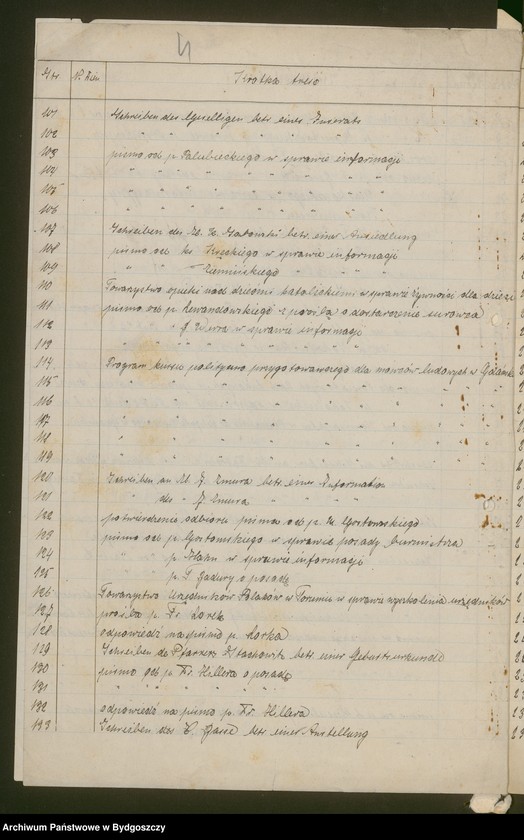 Str. N. dzien. Krótka treść
101 Schreiben des Geselligen betr. eines Inserats
102 " " " " "
103 pismo od p. Palubieckiego w sprawie informacji
104 " " " " " "
105 " " " " " "
106 " " " " " "
107 Schreiben des betr. einer Ansiedlung
108 pismo od ks. w sprawie informacji
109 " " Ziemińskiego " " "
110 Towarzystwo opieki nad dziećmi katolickiemi w sprawie żywności dla dzieci
111 pismo od p. Lewandowskiego z prośbą o dostarczenie surowca
112 " " w sprawie informacji
113 " " " " "
114 Program kursu polityczno przygotowawczego dla mówców ludowych w Gdańsku
115 " " " " " " " "
116 " " " " " " " "
117 " " " " " " " "
118 " " " " " " " "
119 " " " " " " " "
120 Schreiben an M. J. Zmura betr. einer Information
121 " des " J. Zmura " " "
122 potwierdzenie odbioru pisma od p. Gostomskiego
123 pismo od p. Gostomskiego w sprawie posady burmistrza
124 " " p. Hahn w sprawie informacji
125 " " p. T. o posadę
126 Towarzystwo Urzędników Polaków w Toruniu w sprawie wyszkolenia urzędników
127 prośba p. Fr. Lorek
128 odpowiedź na pismo p. Lorka
129 Schreiben de Pfarrers betr. einer Geburtsurkunde
130 pismo od p. Fr. Hillera o posadę
131 " " " " " "
132 odpowiedź na pismo p. Fr. Hillera
133 Schreiben des betr. einer Anstellung
Archiwum Państwowe w Bydgoszczy